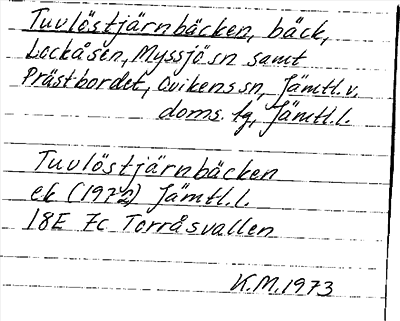 Tuvlöstjärnbäcken, bäck,
Lockåsen, Myssjö sn samt
Prästbordet, Ovikens sn, Jämtl.v.
doms. lg, Jämtl.l.
Tuvlöstjärnbäcken
ek (1972) Jämtl.l.
18E 7c Torråsvallen
K.M. 1973